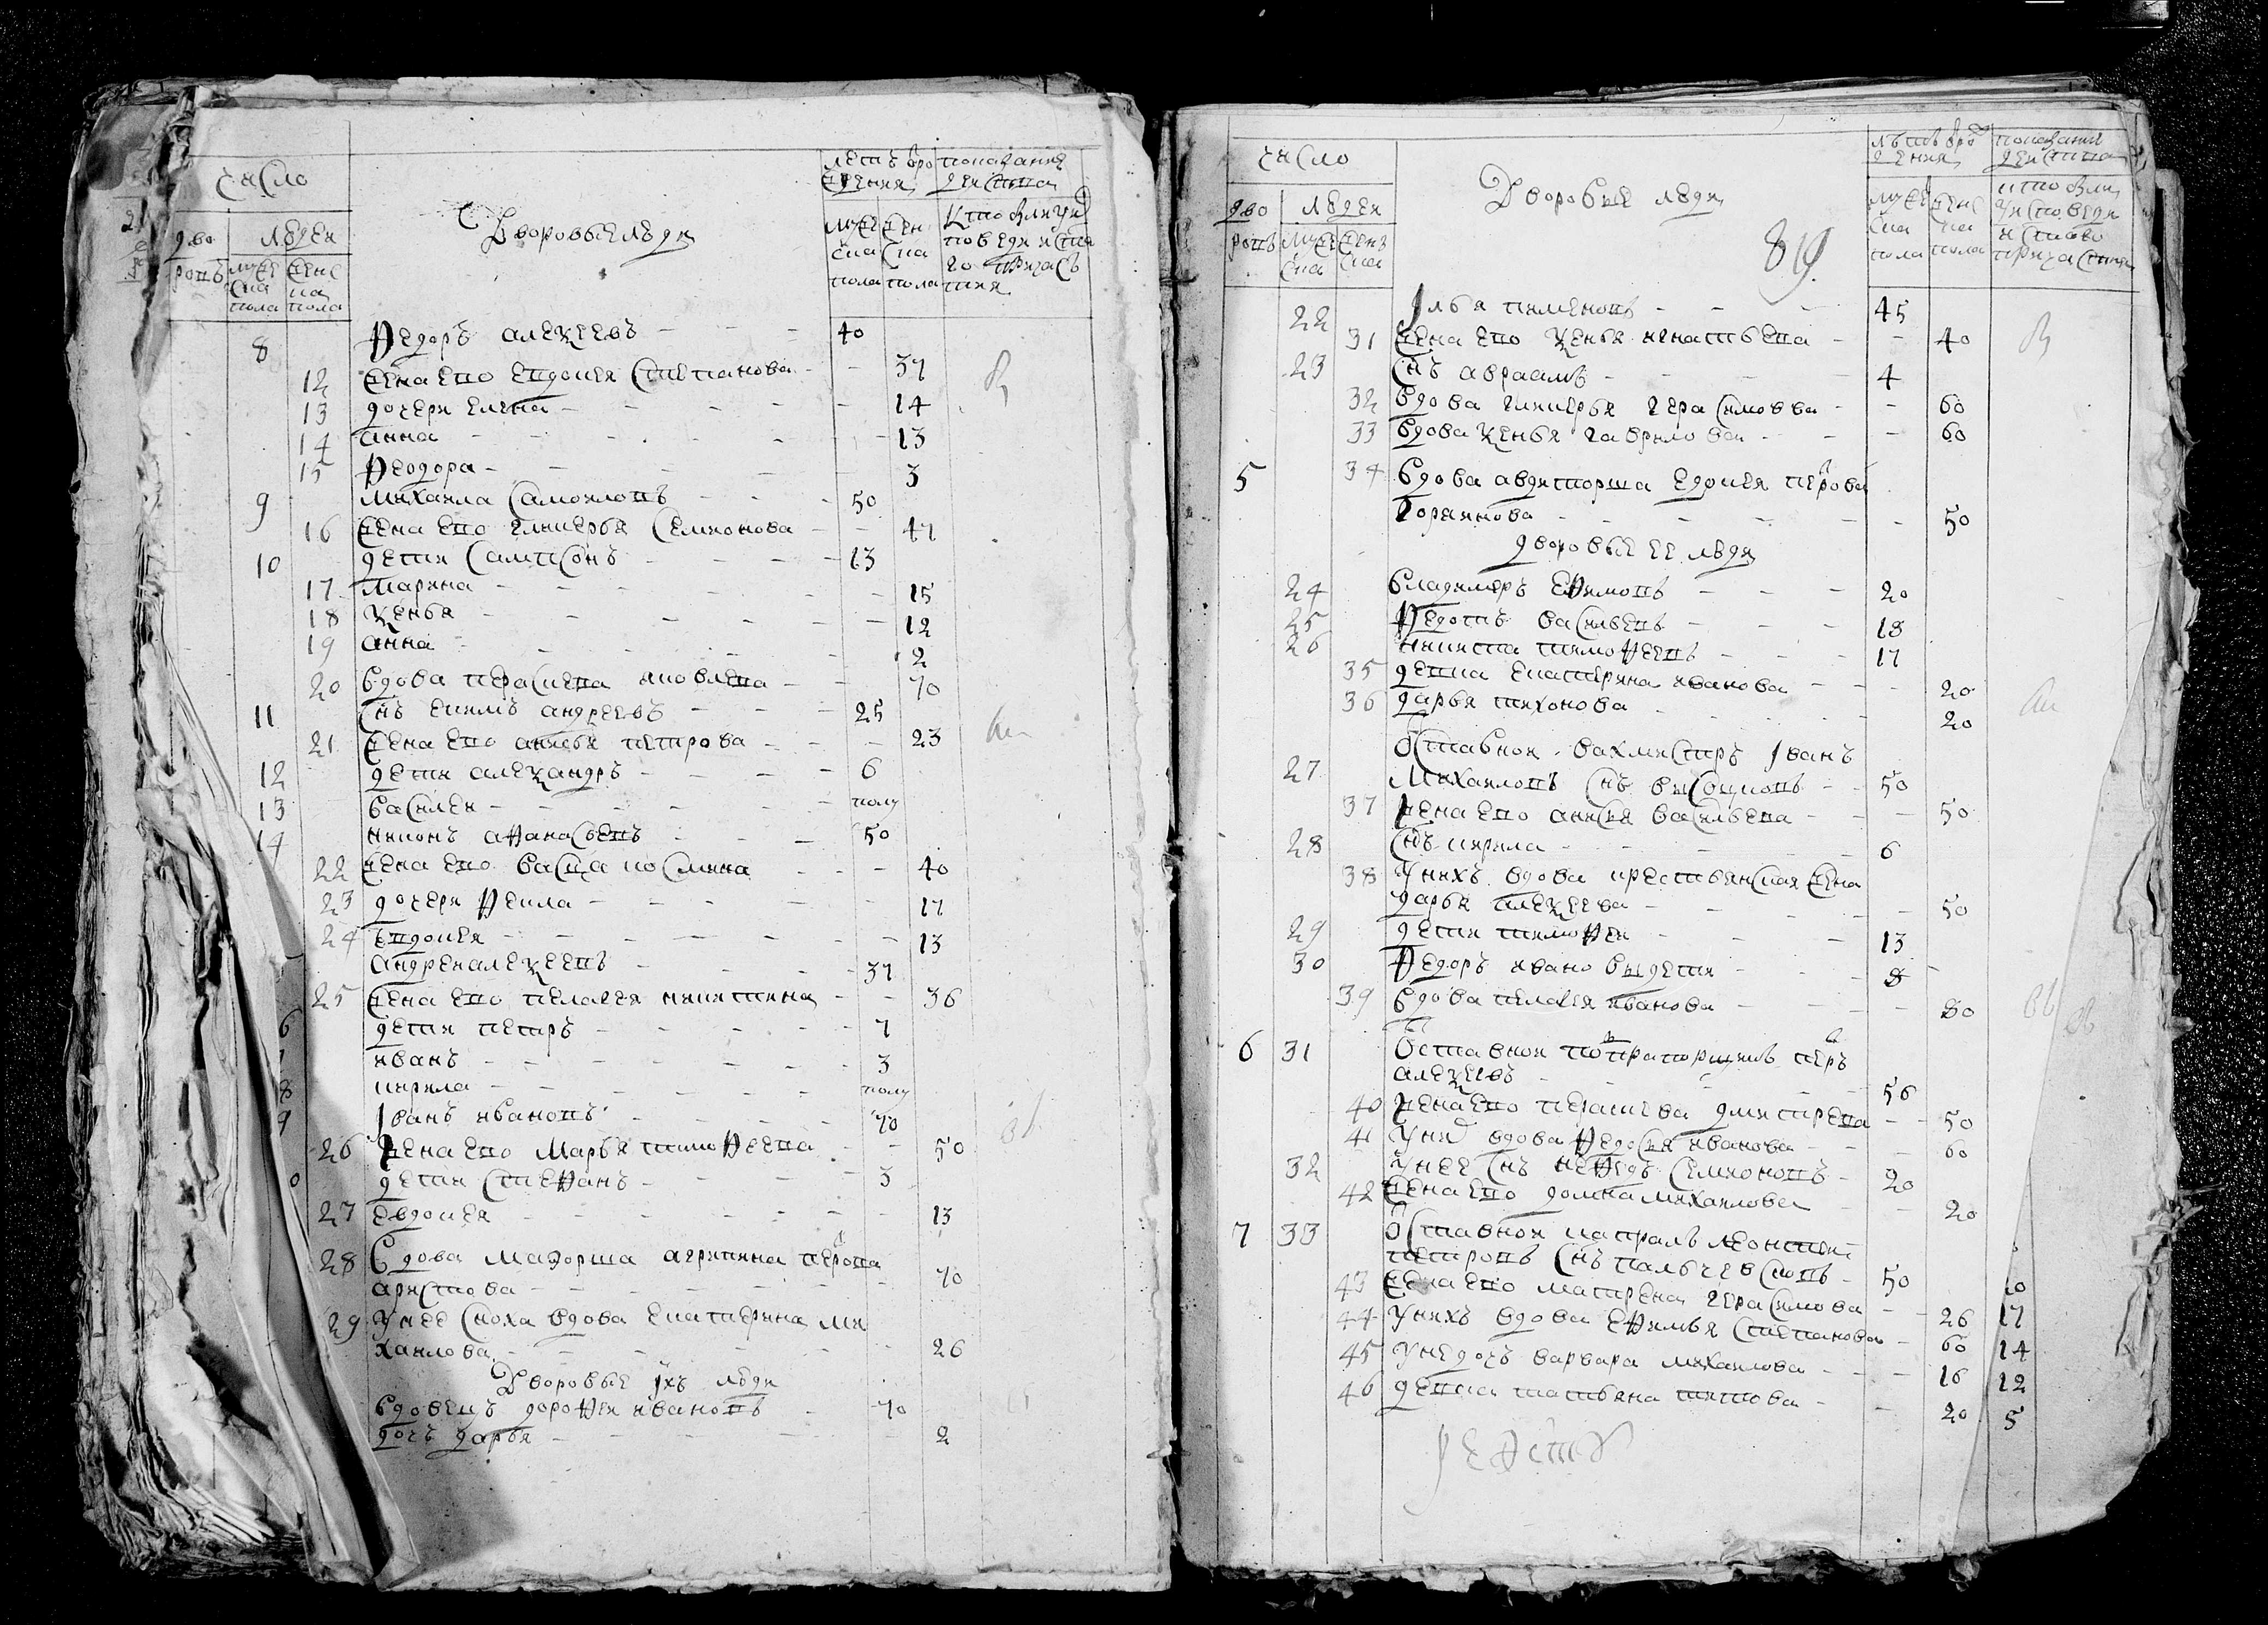 число
дворовъ
людей
мужеска пола
женска пола
Дворовые люди
летъ от рождения
мужеска пола
женска пола
показание действа
кто был у исповеди и святаго причастия
8 Федоръ алеѯеевъ - - - 40
12 жена ево евдокея степанова - - 37
13 дочери елена - - - - 14
14 анна - - - - 13
15 Феодора - - - - 3
9 михаила самоиловъ - - - 50
16 жена ево гликерья семионова - - 47
10 дети сампсонъ - - - 13
17 Марина - - - - 15
18 ѯенья - - - - 12
19 анна - - - - 2
20 вдова праскева яковлева - - 70
11 снъ екимъ андреевъ - - - 25
21 жена ево анисья петрова - - 23
12 дети алеѯандръ - - - 6
13 василеи - - - - полу
14 никонъ афанасьевъ - - - 50
22 жена ево васса космина - - 40
23 дочери Фекла - - - - 17
24 евдокея - - - - 13
андреи алеѯеевъ - - - 37
25 жена ево пелагея никитина - - 36
6 дети петръ - - - - 7
7 иванъ - - - - 3
8 кирила - - - - полу
9 Iванъ ивановъ - - - 70
26 жена ево Марья тимофеева - - 50
0 дети стефанъ - - - 3
27 евдокея - - - - 13
28 Вдова маэорша агрипина петрова
аристова - - - - 70
29 у нее сноха вдова екатерина ми
хаилова - - - - 26
Дворовые iхъ люди
вдовецъ дорофеи ивановъ - 70
дочь дарья - - - - 2
число
дворовъ
людей
мужеска
женска
Дворовые люди
819
летъ от рождения
мужеска пола
женска пола
показание действа
кто был у исповеди и святаго причастия
22 Iлья пименовъ - - - 45
31 жена ево ѯенья игнатьева - - 40
23 снъ авраамъ - - - 4
32 вдова гликерья герасимовва - - 60
33 вдова ѯенья гаврилова - - 60
5 34 вдова авдиторша едокея петрова
Горяинова - - - - 50
дворовые ее люди
24 владимеръ ефимовъ - - - 20
25 Федотъ васильевъ - - - 18
26 никита тимофеевъ - - - 17
35 девка екатерина иванова - - 20
36 дарья тихонова - - - 20
Оставной вахмистръ Iванъ
27 Михаиловъ снъ высоцковъ - - 50
37 жена ево анисия васильева - - 50
28 снъ кирила - - - 6
38 У нихъ вдова крестьянская жена
дарья алеѯеева - - - 50
29 дети тимофеи - - - 13
30 Федоръ ивановы дети - - 8
39 вдова пелагея иванова - - 80
6 31 Оставной подпрапорщикъ петръ
алеѯеевъ - - - 56
40 жена ево праскева дмитрева - - 50
41 У них вдова Федосия иванова - - 60
32 У нее снъ нефедъ семионовъ - 20
42 жена ево домна михаилова - - 20
7 33 Оставной капралъ леонтеи
петровъ снъ пальчевсковъ - 50
43 жена ево матрена герасимова - - 26
44 У нихъ вдова ефимья степанова - 60
45 У не дочь варвара михаилова - - 16
46 девка татьяна титова - - 20
17
14
12
5